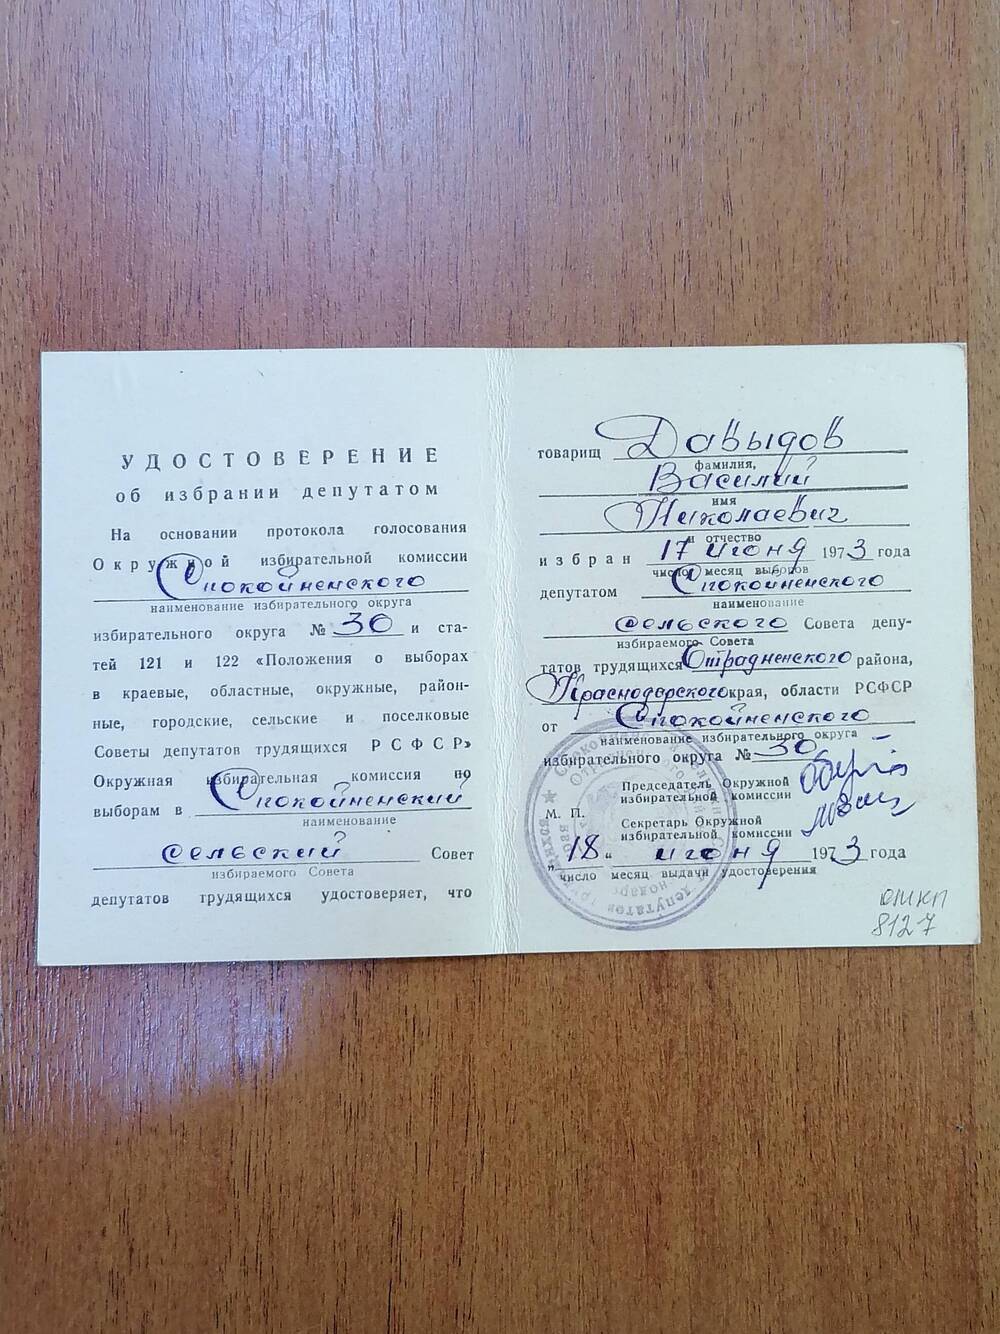 УДОСТОВЕРЕНИЕ
об избрании депутатом
На основании протокола голосования
Окружной избирательной комиссии
Спокойненского
наименование избирательного округа
избирательного округа № 30 и ста-
тей 121 и 122 «Положения о выборах
в краевые, областные, окружные, район-
ные, городские, сельские и поселковые
Советы депутатов трудящихся РСФСР»
Окружная избирательная комиссия по
выборам в Спокойненский
наименование
сельский Совет
избираемого Совета
депутатов трудящихся удостоверяет, что
товарищ Давыдов
фамилия,
Василий
имя
Николаевич
и отчество
избран 17 июня 1973 года
число месяц выборов
депутатом Спокойненского
наименование
сельского Совета депу-
избираемого Совета
татов трудящихся Отрадненского района,
Краснодарского края, области РСФСР
от Спокойненского
наименование избирательного округа
избирательного округа № 30
Председатель Окружной
избирательной комиссии
М. П.
Секретарь Окружной
избирательной комиссии
„18“ июня 1973 года
число месяц выдачи удостоверения
ОМКП
8127